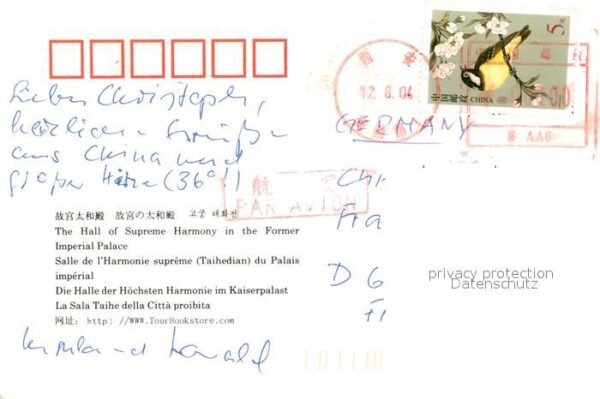 Lieber Christoph,
herzliche Grüße
aus China und
großer Hitze (36°!)
故宫太和殿 故宮の太和殿 고궁 태화전
The Hall of Supreme Harmony in the Former
Imperial Palace
Salle de l'Harmonie suprême (Taihedian) du Palais
impérial
Die Halle der Höchsten Harmonie im Kaiserpalast
La Sala Taihe della Città proibita
网址: http: //WWW.TourBookstore.com
5
中国邮政 CHINA
12.8.04
AA6
GERMANY
航空
PAR AVION
Chr
Ha
D 6
privacy protection
Datenschutz